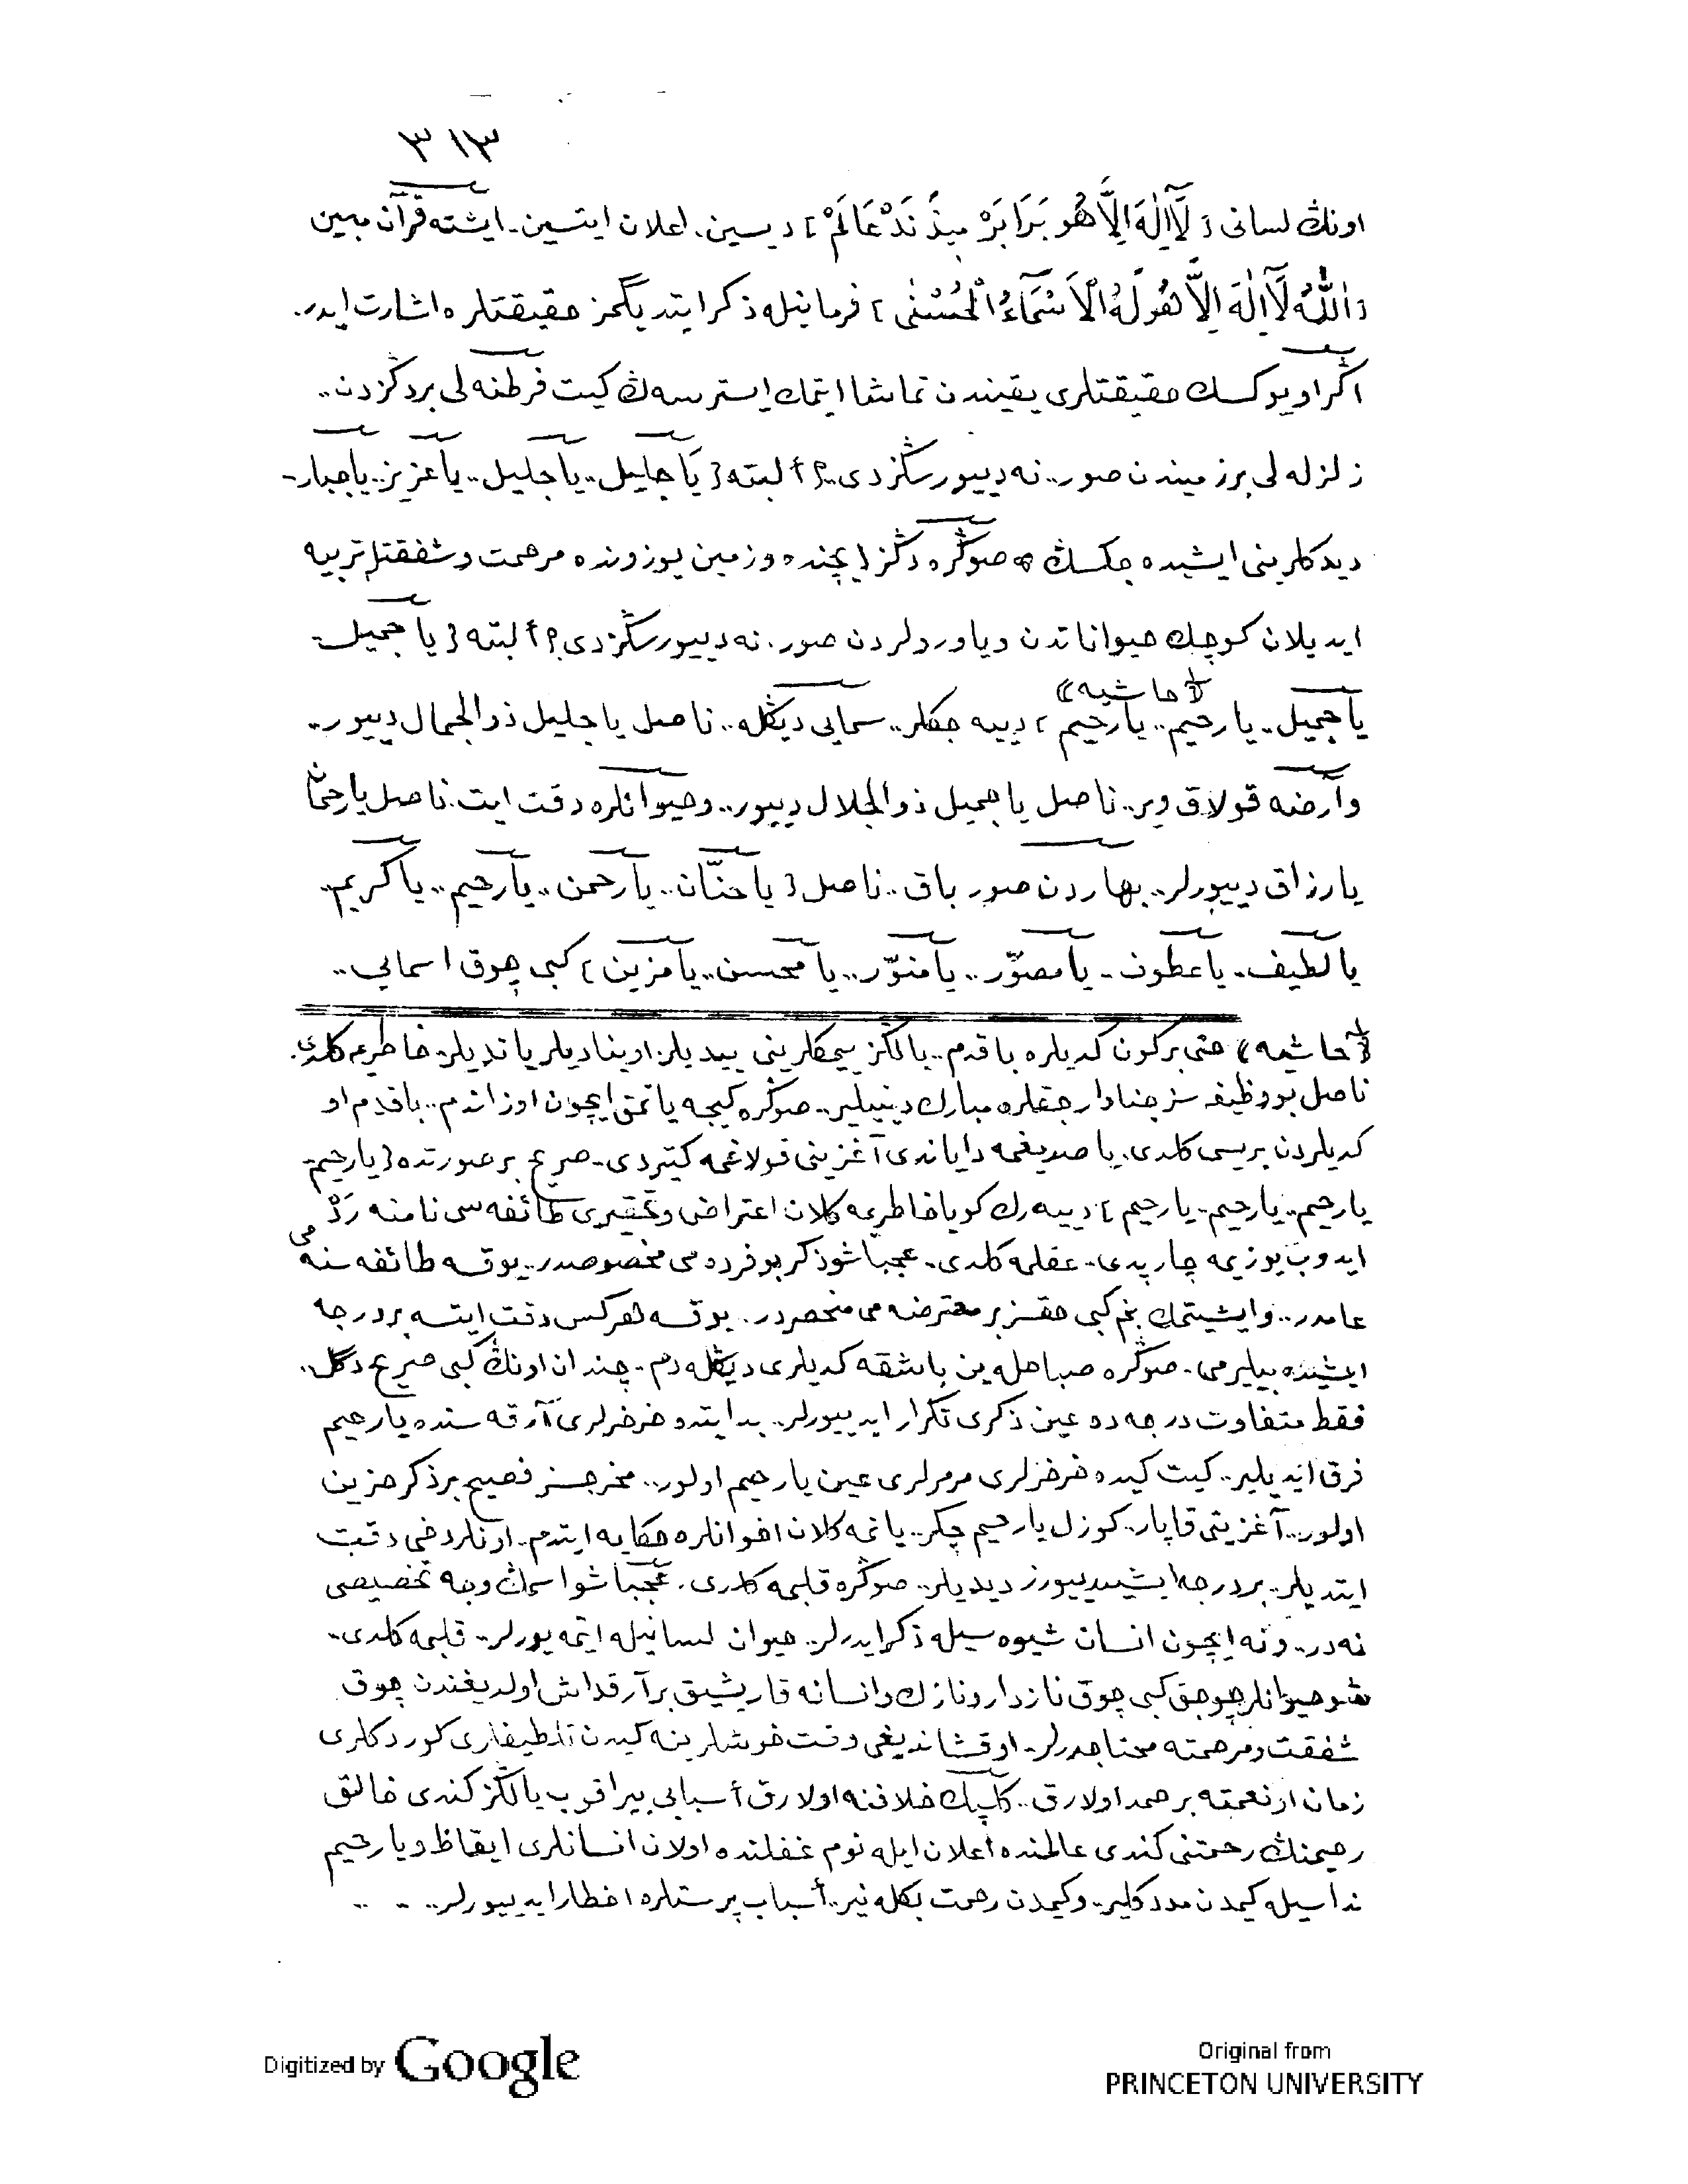 ٣١٣
اونڭ لسانی { لَٓا اِلٰهَ اِلَّا هُو بَرَابَرْ مِيذَنَدْ عَالَمْ } ديسين. اعلان ايتسين.. ايشته قرآن مبين
{ اَللّٰهُ لَٓا اِلٰهَ اِلَّا هُوَ لَهُ الْاَسْمَٓاءُ الْحُسْنٰى } فرمانيله ذكر ايتديگمز حقيقتلره اشارت ايدر.
اگر او يوكسك حقيقتلری يقيندن تماشا ايتمك ايسترسه‌ڭ كيت فرطنه‌لی بر دڭزدن..
زلزله‌لی بر زميندن صور.. نه دييورسڭز دی..؟ ألبته { يَا جليل.. يا جليل.. يا عزيز.. يا جبار..
ديدكلرينی ايشيده‌جكسڭ. صوڭره دڭز ايچنده و زمين يوزونده مرحمت و شفقتله تربيه
ايديلان كوچك حيواناتدن و ياورولردن صور. نه دييورسڭز دی؟ ألبته { يا جميل..
﴿حاشيه﴾
يا جميل.. يا رحيم.. يا رحيم } دييه‌جكلر.. سمايی ديڭله.. ناصل يا جليل ذو الجمال دييور..
و أرضه قولاق وير.. ناصل يا جميل ذو الجلال دييور.. و حيوانلره دقت ايت. ناصل يا رحمان
يا رزاق دييورلر.. بهاردن صور باق.. ناصل { يا حنّان.. يا رحمن.. يا رحيم.. يا كريم..
يا لطيف.. يا عطوف.. يا مصوّر.. يا منوّر.. يا محسن.. يا مزين } كبی چوق اسمايی..
﴿حاشيه﴾ حتی بر كون كديلره باقدم.. يالڭز يمكلرينی ييديلر. اوينادیلر ياتديلر. خاطريمه كلدی.
ناصل بو وظيفه‌سز جناوارجقلره مبارك دينيلير.. صوڭره كيجه ياتمق ايچون اوزاندم.. باقدم او
كديلردن بريسی كلدی. ياصديغمه داياندی آغزينی قولاغمه كتيردی. صريح بر صورتده { يا رحيم..
يا رحيم.. يا رحيم.. يا رحيم } دييه‌رك كويا خاطريمه كلان اعتراض و تحقيری طائفه‌سی نامنه رَدّ
ايدوب يوزيمه چارپدی.. عقلمه كلدی. عجبا شو ذكر بو فرده می مخصوصدر.. يوقسه طائفه‌سنه می
عامدر.. و ايشيتمك بنم كبی حقسز بر معترضه می منحصردر. يوقسه هركس دقت ايتسه بر درجه
ايشيده‌بيلير می. صوڭره صباحله‌ين باشقه كديلری ديڭله‌دم.. چندان اونڭ كبی صريح دگل..
فقط متفاوت درجه‌ده عين ذكری تكرار ايدييورلر.. بدايتده خرخرلری آرقه‌سنده يا رحيم
فرق ايديلير.. كيت كيده خرخرلری مرمرلری عين يا رحيم اولور.. مخرجسز فصيح بر ذكر حزين
اولور.. آغزينی قاپار.. كوزل يا رحيم چكر.. يانمه كلان اخوانلره حكايه ايتدم. اونلر دخی دقت
ايتديلر.. بر درجه ايشيدييورز ديديلر.. صوڭره قلبمه كلدی. عجبا شو اسمڭ وجه تخصيصی
نه‌در.. و نه ايچون انسان شيوه‌سيله ذكر ايدرلر.. حيوان لسانيله ايتمه‌يورلر.. قلبمه كلدی..
شو حيوانلر چوجق كبی چوق نازدار و نازك و انسانه قاريشيق بر آرقداش اولديغندن چوق
شفقت و مرحمته محتاجدرلر.. اوقشانديغی وقت خوشلرينه كيدن تلطيفلری كوردكلری
زمان او نعمته بر حمد اولارق.. كلبڭ خلافنه اولارق أسبابی بيراقوب يالڭز كندی خالق
رحيمنڭ رحمتنی كندی عالمنده اعلان ايله نوم غفلتده اولان انسانلری ايقاظ و يا رحيم
نداسيله كيمدن مدد كلير.. و كيمدن رحمت بكله‌نير.. أسباب‌پرستلره اخطار ايدييورلر..
Digitized by Google
Original from
PRINCETON UNIVERSITY